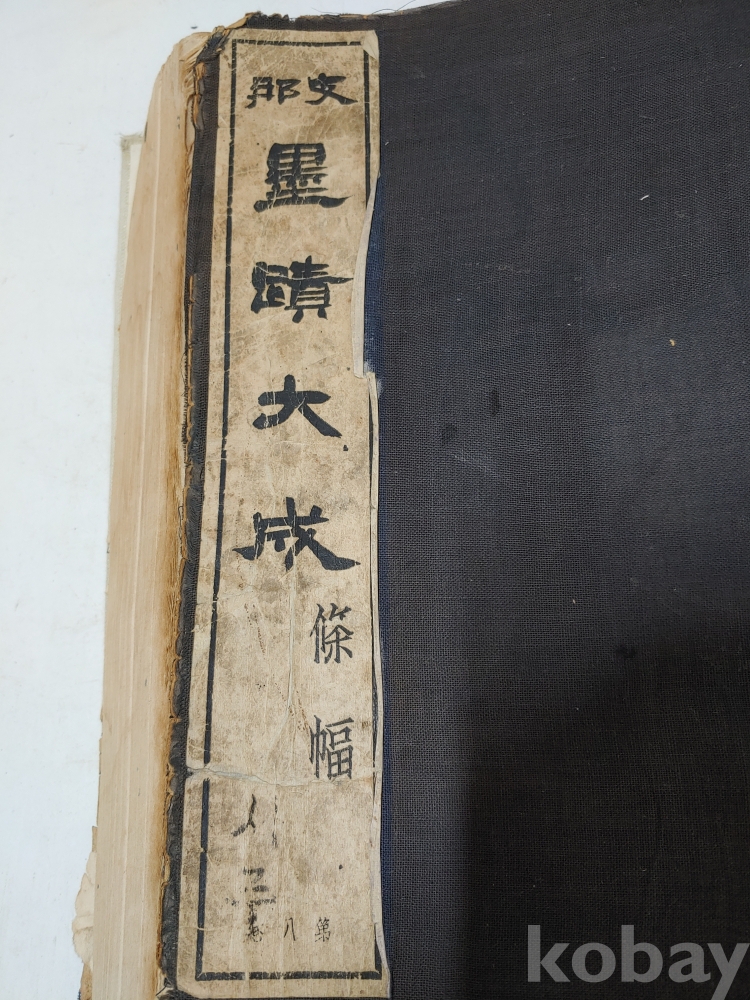 支那
墨蹟大成
條幅
第八卷
kobay